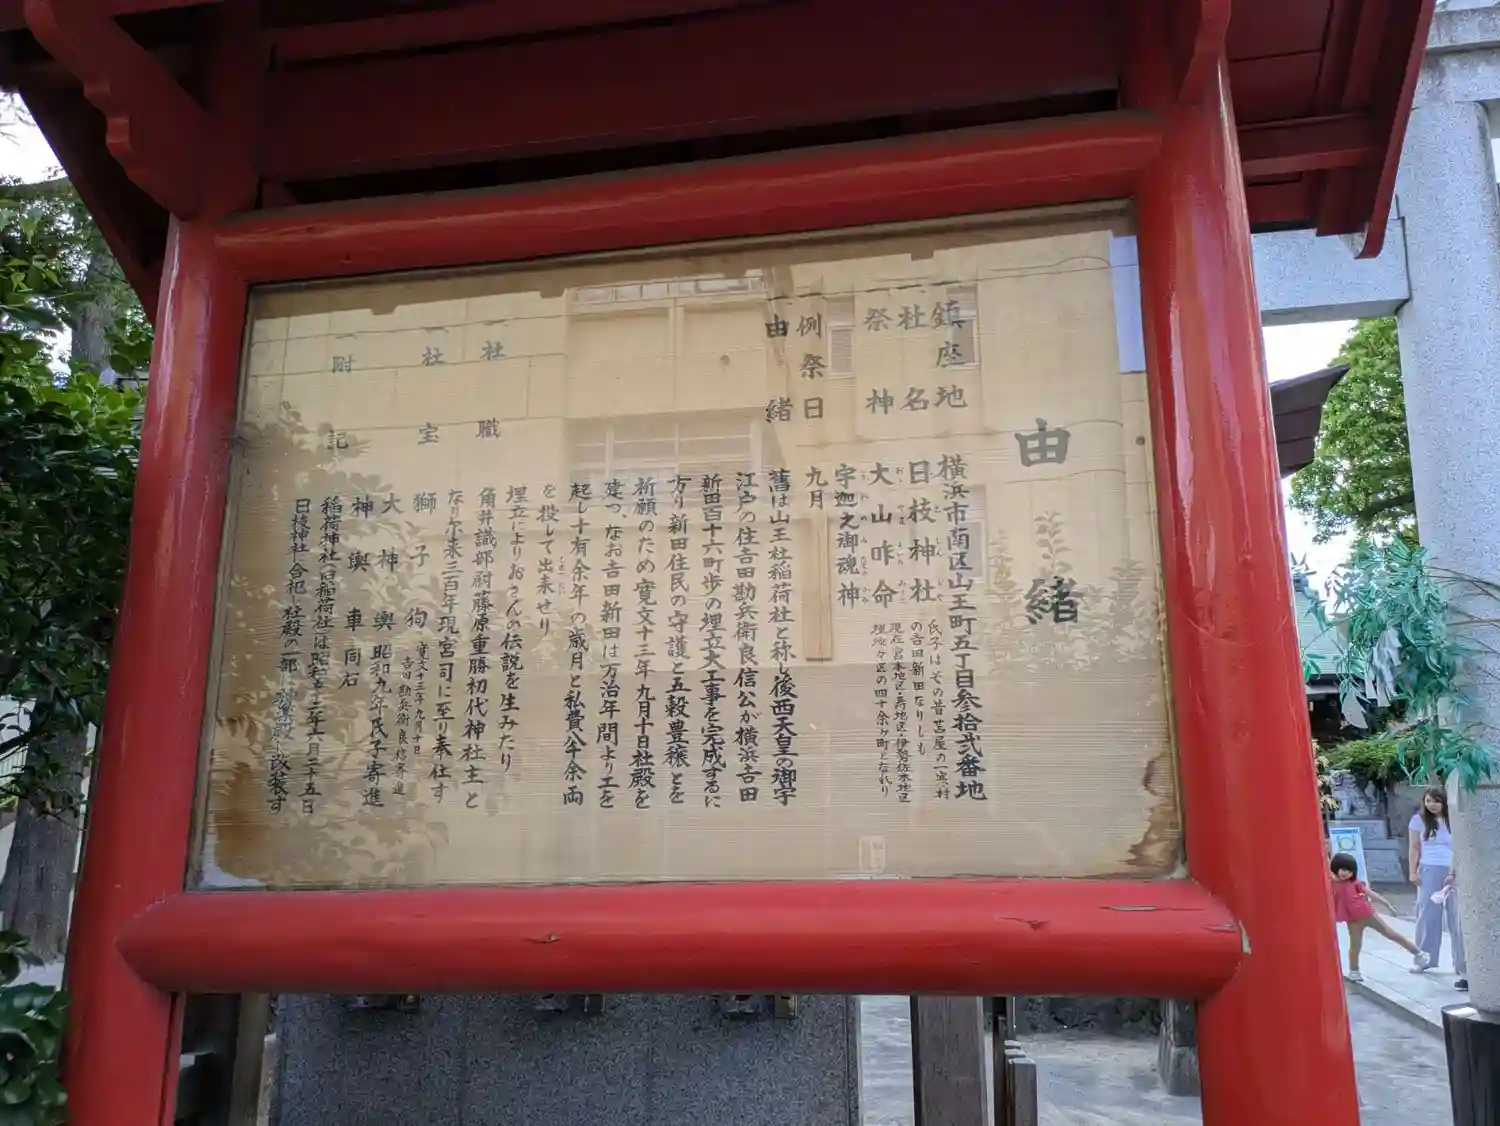 由緒
鎮座地 横浜市南区山王町五丁目参拾弐番地
社名 日枝神社
氏子はその昔苫屋の一寒村
の吉田新田なりしも
現在宮本地区・寿地区・伊勢佐木地区
埋地々区の四十余ヶ町となれり
祭神 大山咋命
宇迦之御魂神
例祭日 九月
由緒 舊は山王社稲荷社と称し後西天皇の御宇
江戸の住吉田勘兵衛良信公が横浜吉田
新田百十六町歩の埋立大工事を完成するに
方り新田住民の守護と五穀豊穣とを
祈願のため寛文十三年九月十日社殿を
建つ、なお吉田新田は万治年間より工を
起し十有余年の歳月と私費八千余両
を投して出来せり
埋立によりおさんの伝説を生みたり
一社職 角井識部尉藤原重勝初代神社主と
なり尓来三百年現宮司に至り奉仕す
一社宝 獅子狗 寛文十三年九月十日
吉田勘兵衛良信寄進
大神輿 昭和九年氏子寄進
神輿車 同右
附記 稲荷神社(旧稲荷社)は昭和 年 月二十五日
日枝神社に合祀 社殿の一部は神楽殿に改装す